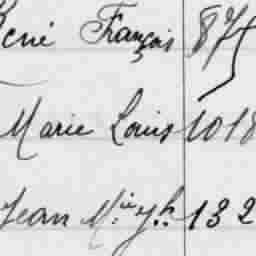 René François 875
Marie Louis 1018
Jean M.ie Jh. 132